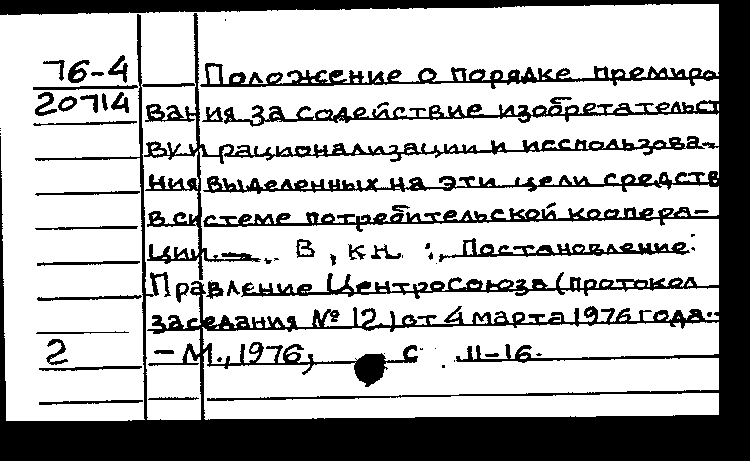 76-4 Положение о порядке премиро
20714 вания за содействие изобретательст
ву и рационализации и исспользова-
ния выделенных на эти цели средств
в системе потребительской коопера-
ции.—. В, кн. :, Постановление:
Правление Центросоюза (протокол
заседания № 12.) от 4 марта 1976 года.
2 - М., 1976, с .11-16.